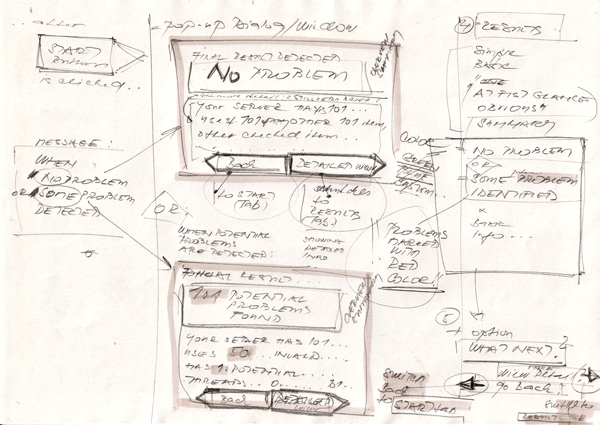 ... after
START
Button
is clicked...
MESSAGE:
WHEN
NO PROBLEM
OR
SOME PROBLEM
DETECTED
- POP-UP Dialog/Window
FINAL RESULT DETECTED
NO PROBLEM
YOUR SERVER HAS 101...
other checked item...
Back
DETAILED
to START
(TAB)
to
RESULTS
(TAB)
SHOWING
DETAILED
INFO
OR:
WHEN POTENTIAL
PROBLEMS
ARE DETECTED:
RESULT...
101 POTENTIAL
PROBLEMS
FOUND
YOUR SERVER HAS 101...
USES 50 INVALID....
HAS 1 POTENTIAL....
THREADS.. 0..
Back
DETAILED
COLOR
GREEN
SYSTEM...
PROBLEMS
MARKED
WITH
RED
COLOR!!
4 - RESULTS
Simple
BASIC
AT FIST GLANCE
OBVIOUS"
SUMMARY
- NO PROBLEM
OR
- SOME PROBLEM
IDENTIFIED
*
BASIC
info...
5
+ option
WHAT NEXT?
go Back?
Switch
Back
to
START TAB
Switch to
RESULT